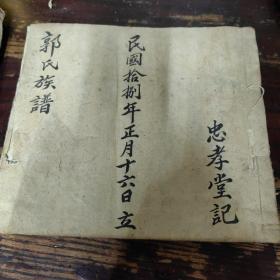 忠孝堂記
民國拾捌年正月十六日立
郭氏族譜